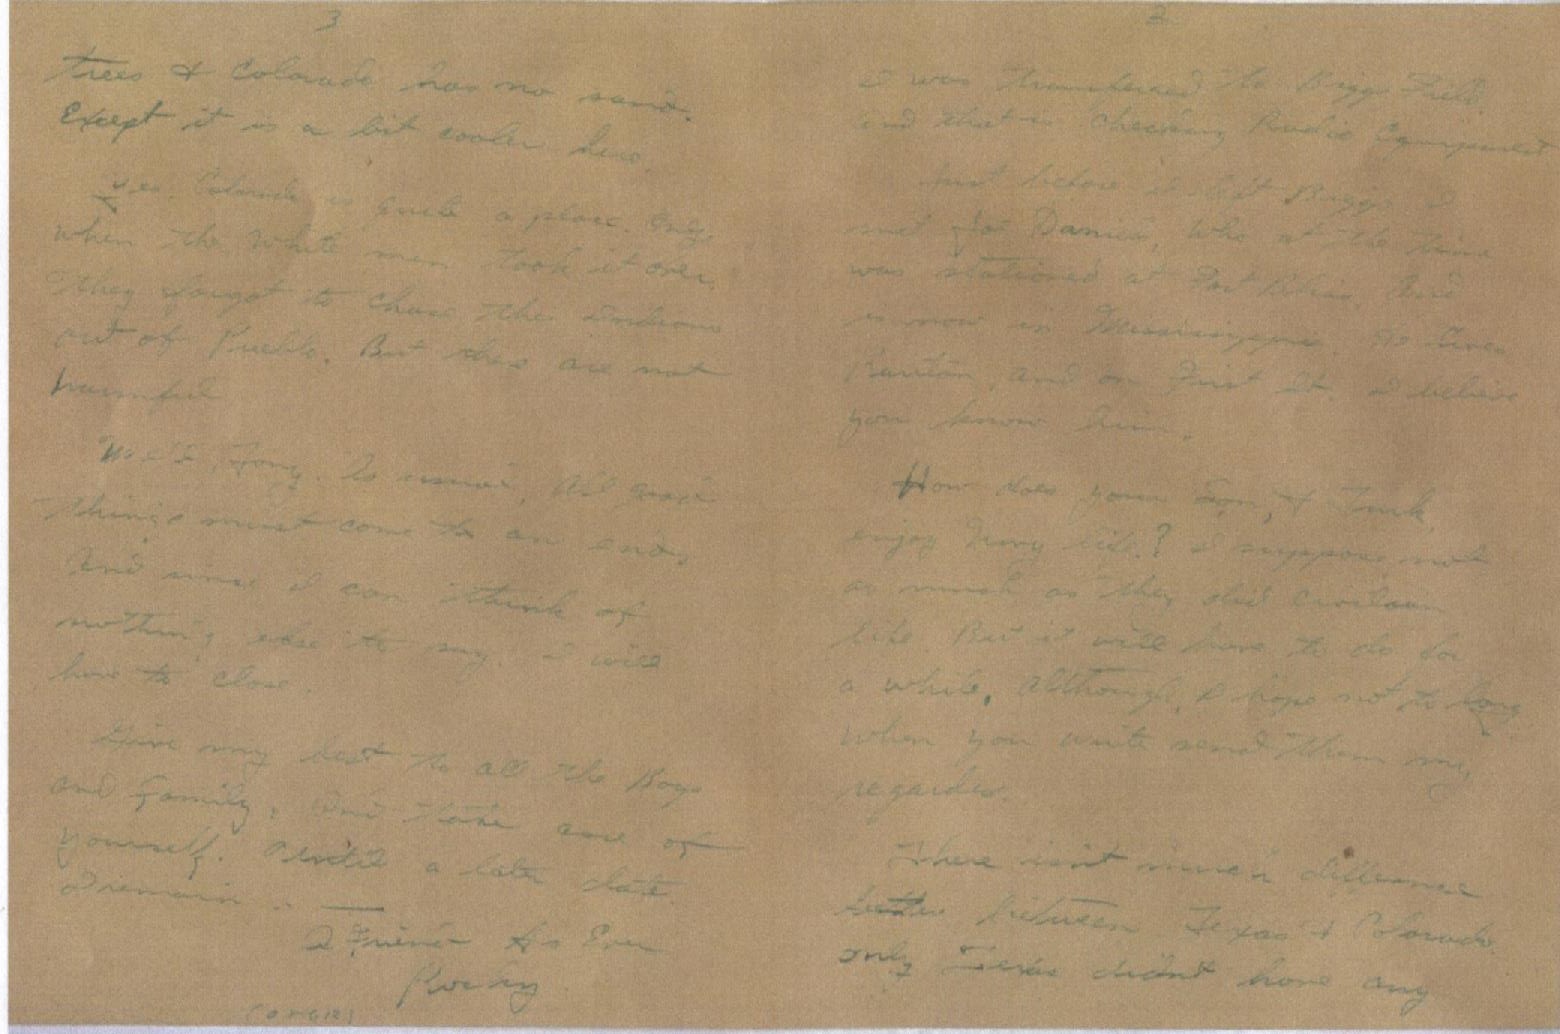 2
I was transferred to Biggs Field.
and that is checking Radio Equipment
Just before I left Biggs I
met Joe Damico, who at the time
was stationed at Fort Bliss. And
is now in Mississippi. He lives
Raritan, and on First St. I believe
you know him.
How does your Son, & Turk,
enjoy Navy life? I suppose not
as much as they did civilian
life. But it will have to do for
a while. Although, I hope not to long
when you write send them my
regardes.
There isn't much difference
between Texas & Colorado.
only Texas didn't have any
3
trees & Colorado has no sand.
Except it is a bit cooler here.
Yes. Colorado is quite a place. Only
when the white men took it over.
They forgot to chase the Indians
out of Pueblo. But they are not
harmful
Well, Tony. As usual, All good
things must come to an end,
And since I can think of
nothing else to say. I will
have to close.
Give my best to all the Boys
and family, And take care of
yourself. Until a later date
I remain . . —
A Friend As Ever
Rocky